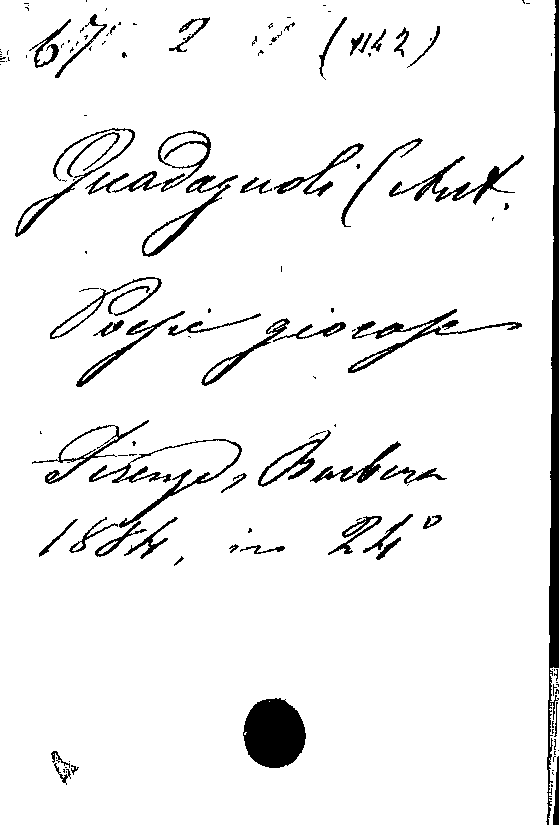 67. 2 (1142)
Guadagnoli (Ant.
Poesie giocose
Firenze, Barbera
1884, in 24°